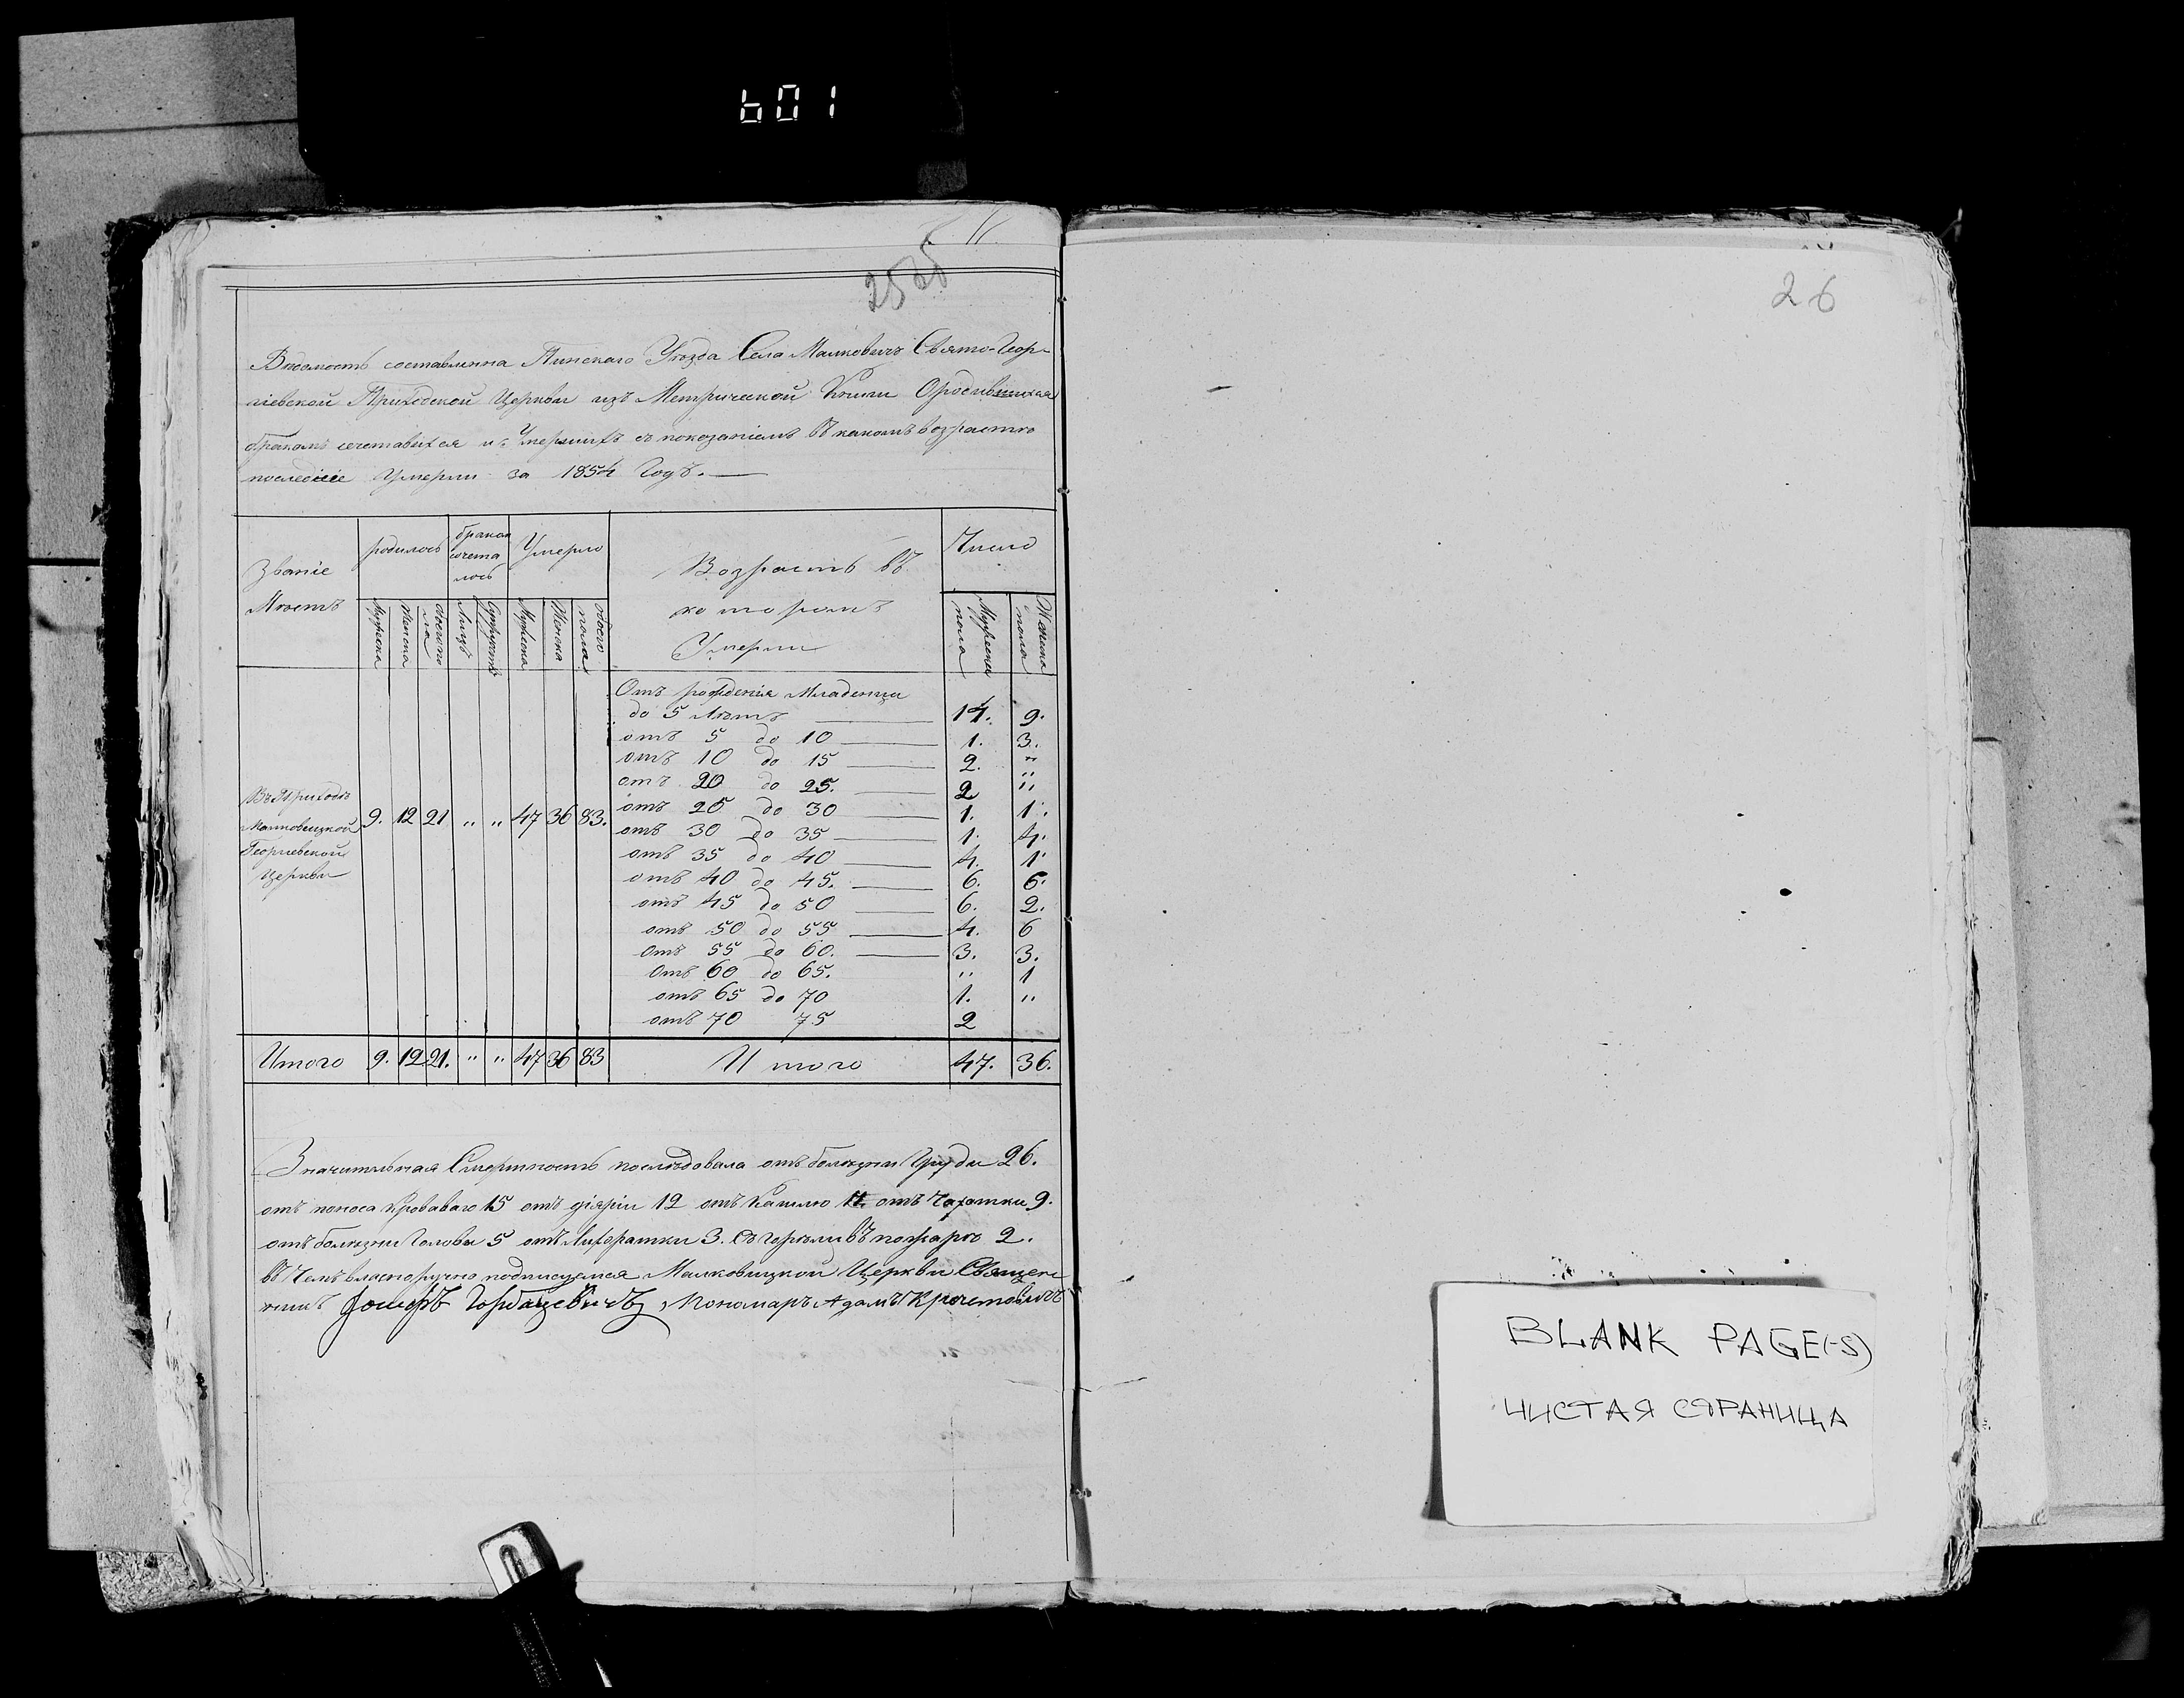 601
25об
26
Вѣдомость составленна Пинскаго Уѣзда Села Малковичъ Свято-Геор-
гіевской Приходской Церкви изъ Метрической Книги О родившихся
бракомъ сочетавшихся и Умершихъ съ показаніемъ въ какомъ возрастѣ
последніе Умерли за 1854 Годъ. —
Званіе Мѣстъ | родилось | бракомъ сочеталось | Умерло | Возрастъ въ которомъ Умерли | Число
Мужеска | Женска | обоего пола | Лицъ | Супружествъ | Мужеска | Женска | обоего пола | Мужеска пола | Женска пола
Отъ рожденія Младенцы
до 5 Лѣтъ — 14. 9.
отъ 5 до 10 — 1. 3.
отъ 10 до 15 — 2. "
отъ 20 до 25. — 2 "
отъ 25 до 30 — 1. 1.
отъ 30 до 35 — 1. 4.
отъ 35 до 40 — 4. 1
отъ 40 до 45. — 6. 6.
отъ 45 до 50 — 6. 2.
отъ 50 до 55 — 4. 6
отъ 55 до 60. — 3. 3.
отъ 60 до 65. " 1
отъ 65 до 70 1. "
отъ 70 75 2
Въ Приходѣ
Малковицкой
Георгіевской
Церкви
9. 12 21 " " 47 36 83.
Итого 9. 12 21. " " 47 36 83 Итого 47. 36.
Значительная Смертность послѣдовала отъ болѣзни Груди 26.
отъ поноса Кроваваго 15 отъ діяріи 12 отъ Кашлю 11 отъ Чахотки 9.
отъ болѣзни Головы 5 отъ Лихорадки 3. Сгорѣли въ пожарѣ 2.
въ Чемъ власноручно подписуемся Малковицкой Церкви Священ
никъ Іосифъ Горбацевичъ, Пономаръ Адамъ
BLANK PAGE(-S)
ЧИСТАЯ СТРАНИЦА